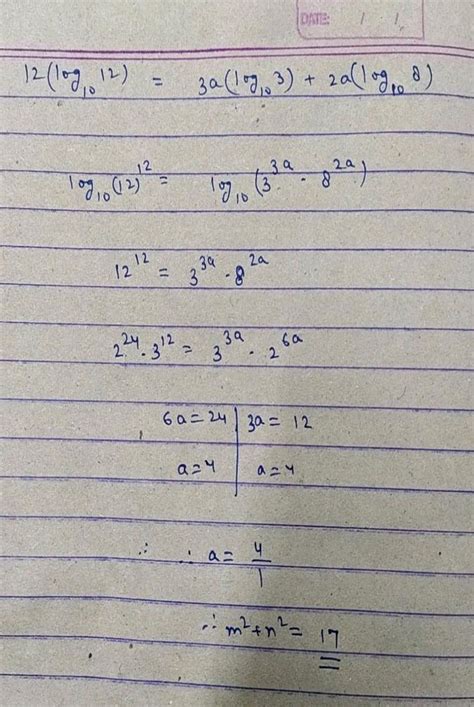 DATE: / /
12(log₁₀ 12) = 3a(log₁₀ 3) + 2a(log₁₀ 8)
log₁₀(12)¹² = log₁₀(3³ᵃ · 8²ᵃ)
12¹² = 3³ᵃ · 8²ᵃ
2²⁴ · 3¹² = 3³ᵃ · 2⁶ᵃ
6a = 24 | 3a = 12
a = 4 | a = 4
∴ ∴ a = 4/1
∴ m² + n² = 17